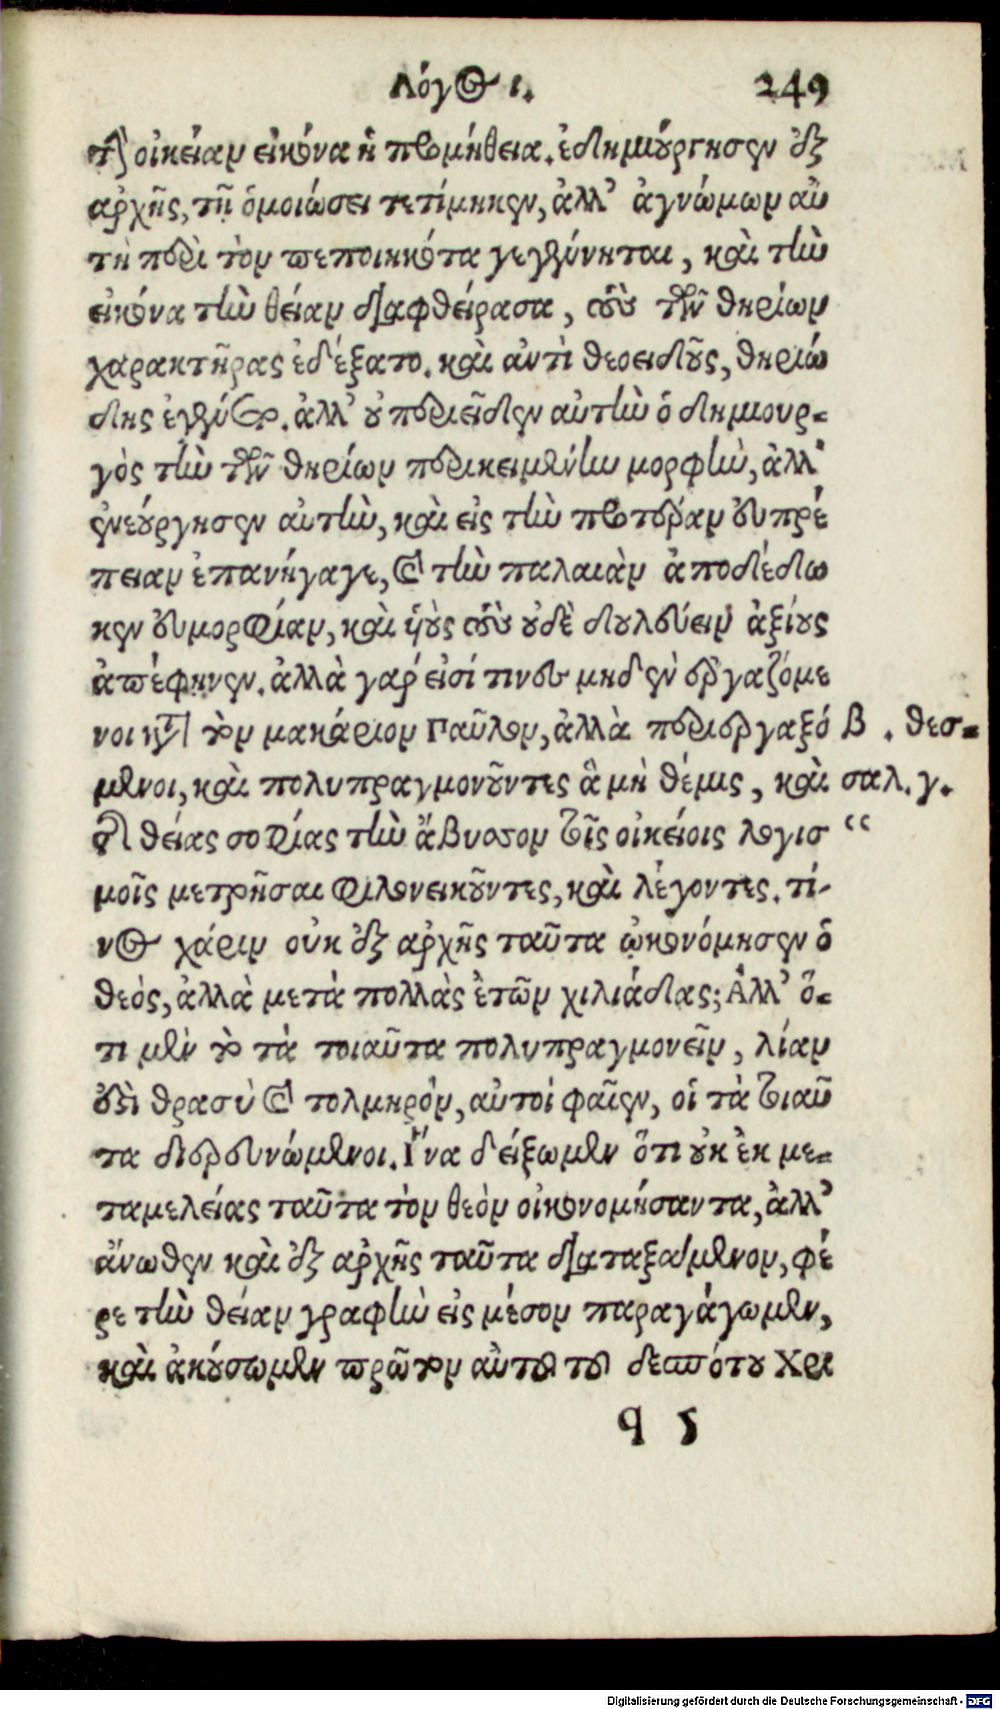 Λόγος ι. 249
τὴν οἰκείαν εἰκόνα ἡ προμήθεια. ἐδημιούργησεν ἐξ
ἀρχῆς, τῇ ὁμοιώσει τετίμηκεν, ἀλλ' ἀγνώμων αὐ
τὴ περὶ τὸν πεποιηκότα γεγένηται, καὶ τὴν
εἰκόνα τὴν θείαν διαφθείρασα, τοὺς τῶν θηρίων
χαρακτῆρας ἐδέξατο. καὶ ἀντὶ θεοειδοῦς, θηριώ
δης ἐγένετο. ἀλλ' οὐ περιεῖδεν αὐτὴν ὁ δημιουρ-
γὸς τὴν τῶν θηρίων περικειμένην μορφὴν, ἀλλ'
ἀνεούργησεν αὐτὴν, καὶ εἰς τὴν προτέραν εὐπρέ
πειαν ἐπανήγαγε, καὶ τὴν παλαιὰν ἀποδέδω
κεν εὐμορφίαν, καὶ υἱοὺς τοὺς οὐδὲ δουλεύειν ἀξίους
ἀπέφηνεν. ἀλλὰ γάρ εἰσί τινες μηδὲν ἐργαζόμε
νοι κατὰ τὸν μακάριον Παῦλον, ἀλλὰ περιεργαζό β . θεσ-
μενοι, καὶ πολυπραγμονοῦντες ἃ μὴ θέμις, καὶ σαλ. γ.
τῆς θείας σοφίας τὴν ἄβυσσον τοῖς οἰκείοις λογισ “
μοῖς μετρῆσαι φιλονεικοῦντες, καὶ λέγοντες. τί-
νος χάριν οὐκ ἐξ ἀρχῆς ταῦτα ᾠκονόμησεν ὁ
θεὸς, ἀλλὰ μετὰ πολλὰς ἐτῶν χιλιάδας; Ἀλλ' ὅ-
τι μὲν τὸ τὰ τοιαῦτα πολυπραγμονεῖν, λίαν
ἐστὶ θρασὺ καὶ τολμηρόν, αὐτοί φαῖεν, οἱ τὰ τοιαῦ
τα διερευνώμενοι. Ἵνα δείξωμεν ὅτι οὐκ ἐκ με-
ταμελείας ταῦτα τὸν θεὸν οἰκονομήσαντα, ἀλλ'
ἄνωθεν καὶ ἐξ ἀρχῆς ταῦτα διαταξάμενον, φέ
ρε τὴν θείαν γραφὴν εἰς μέσον παραγάγωμεν,
καὶ ἀκούσωμεν πρῶτον αὐτοῦ τοῦ δεσπότου Χρι
q 5
Digitalisierung gefördert durch die Deutsche Forschungsgemeinschaft - DFG